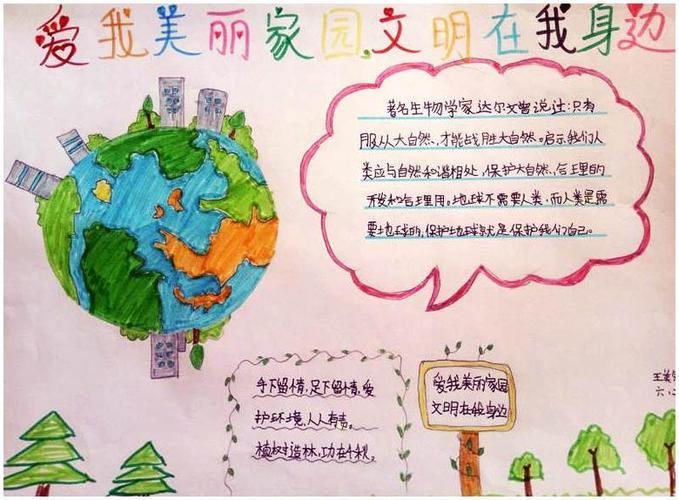 爱我美丽家园,文明在我身边
著名生物学家达尔文曾说过:只有
服从大自然,才能战胜大自然。启示我们人
类应与自然和谐相处,保护大自然,合理的
开发和合理利用。地球不需要人类,而人类是需
要地球的,保护地球就是保护我们自己。
手下留情,足下留情,爱
护环境,人人有责。
植树造林,功在千秋。
爱我美丽家园
文明在我身边
王美
六.二